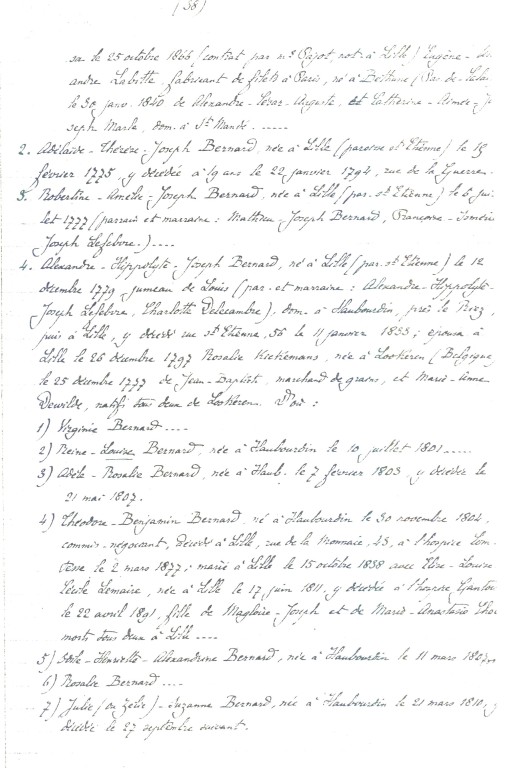 (56)
sa. le 25 octobre 1866 (contrat par me Pajot, not. à Lille) Eugène-
andre Labitte, fabricant de filets à Paris, né à Béthune (Pas-de-Calai
le 30 janv. 1840 de Alexandre-César-Auguste, et Catherine-Aimée-Jo
seph Marle, dom. à St Mandé. .....
2. Adélaïde-Thérèse-Joseph Bernard, née à Lille (paroisse St Etienne) le 15
février 1775, y décédée à 19 ans le 22 janvier 1794, rue de la Guerre.
3. Robertine-Amélie-Joseph Bernard, née à Lille (par. St Etienne) le 6 jui
let 1777 (parrain et marraine : Mathieu-Joseph Bernard, Françoise-Isméri
Joseph Lefebvre.) ....
4. Alexandre-Hippolyte-Joseph Bernard, né à Lille (par. St Etienne) le 12
décembre 1779, jumeau de Louis (par. et marraine : Alexandre-Hippolyte-
Joseph Lefebvre, Charlotte Delecambre), dom. à Haubourdin, près le
puis à Lille, y décédé rue St Etienne, 56 le 11 janvier 1833 ; épousa à
Lille le 26 décembre 1797 Rosalie, née à Lookeren (Belgique
le 25 décembre 1777 de Jean-Baptiste, marchand de grains, et Marie-Anne
Dewilde, natifs tous deux de Lookeren. D'où :
1) Virginie Bernard ....
2) Reine-Louise Bernard, née à Haubourdin le 10 juillet 1801 .....
3) Adèle-Rosalie Bernard, née à Haub. le 7 février 1803, y décédée le
21 mai 1807.
4) Théodore-Benjamin Bernard, né à Haubourdin le 30 novembre 1804,
commis-négociant, décédé à Lille, rue de la Monnaie, 43, à l'hospice Com-
tesse le 2 mars 1877 ; marié à Lille le 15 octobre 1838 avec Elise-Louise
Cécile Lemaire, née à Lille le 17 juin 1811, y décédée à l'hospice Gantoi
le 22 avril 1891, fille de Magloire-Joseph et de Marie-Anastasie
morts tous deux à Lille ....
5) Odile-Henriette-Alexandrine Bernard, née à Haubourdin le 11 mars 1807...
6) Rosalie Bernard ....
7) Julie (ou Zélie)-Suzanne Bernard, née à Haubourdin le 21 mars 1810, y
décédée le 27 septembre suivant.